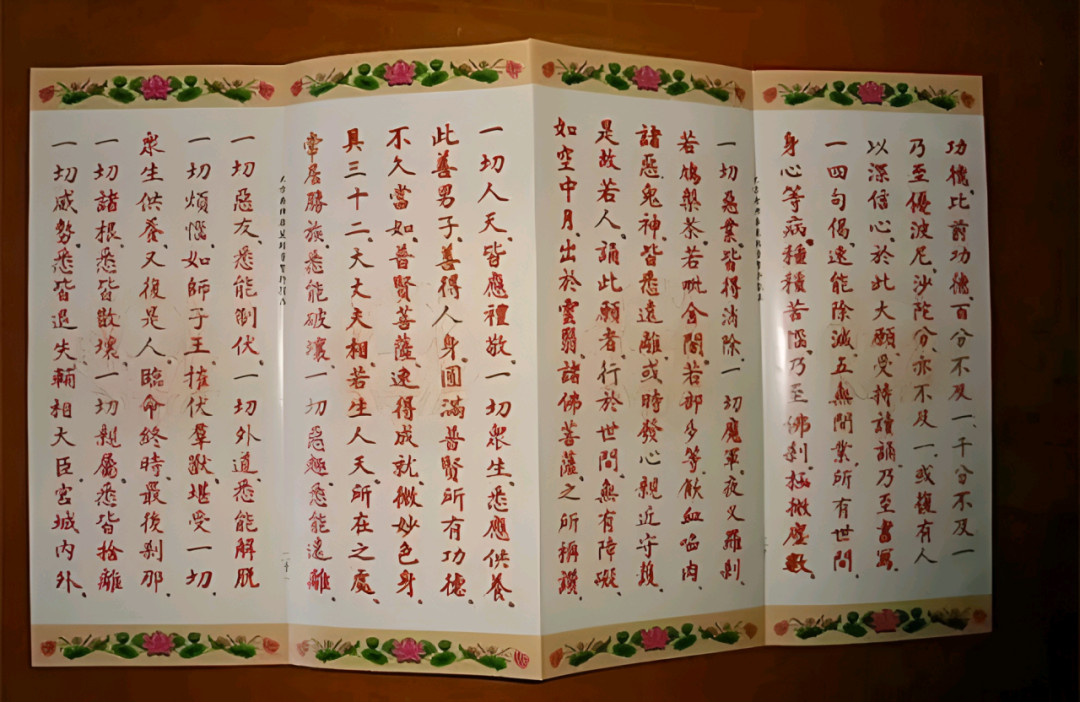 功德、比前功德、百分不及一、千分不及一
乃至優波尼沙陀分、亦不及一、或複有人
以深信心、於此大願、受持讀誦、乃至書寫、
一四句偈、速能除滅、五無間業、所有世間
身心等病、種種苦惱、乃至佛剎、極微塵數、
一切惡業、皆得消除、一切魔軍、夜叉羅剎
若鳩槃荼、若毗舍闍、若部多等、飲血啗肉
諸惡鬼神、皆悉遠離、或時發心、親近守護、
是故若人、誦此願者、行於世間、無有障礙、
如空中月、出於雲翳、諸佛菩薩、之所稱讚、
一切人天、皆應禮敬、一切衆生、悉應供養、
此善男子、善得人身、圓滿普賢、所有功德、
不久當如、普賢菩薩、速得成就、微妙色身、
具三十二、大丈夫相、若生人天、所在之處、
常居勝族、悉能破壞、一切惡趣、悉能遠離、
一切惡友、悉能制伏、一切外道、悉能解脱
一切煩惱、如師子王、摧伏羣獸、堪受一切、
衆生供養、又復是人、臨命終時、最後刹那、
一切諸根、悉皆散壞、一切親屬、悉皆捨離
一切威勢、悉皆退失、輔相大臣、宮城内外、